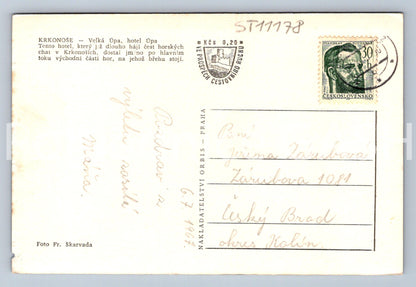 ST11178
KRKONOŠE — Velká Úpa, hotel Úpa
Tento hotel, který již dlouho hájí čest horských
chat v Krkonoších, dostal jméno po hlavním
toku východní části hor, na jehož břehu stojí.
* KČS 0,20 *
VE PROSPĚCH CESTOVNÍHO RUCHU
30
ČESKOSLOVENSKO
Pozdrav z
výletu zasílá
Mána.
6.7.1967.
NAKLADATELSTVÍ ORBIS — PRAHA
Paní
Zárubová
Zárubova 1081
Český Brod
okres Kolín.
Foto Fr. Skarvada